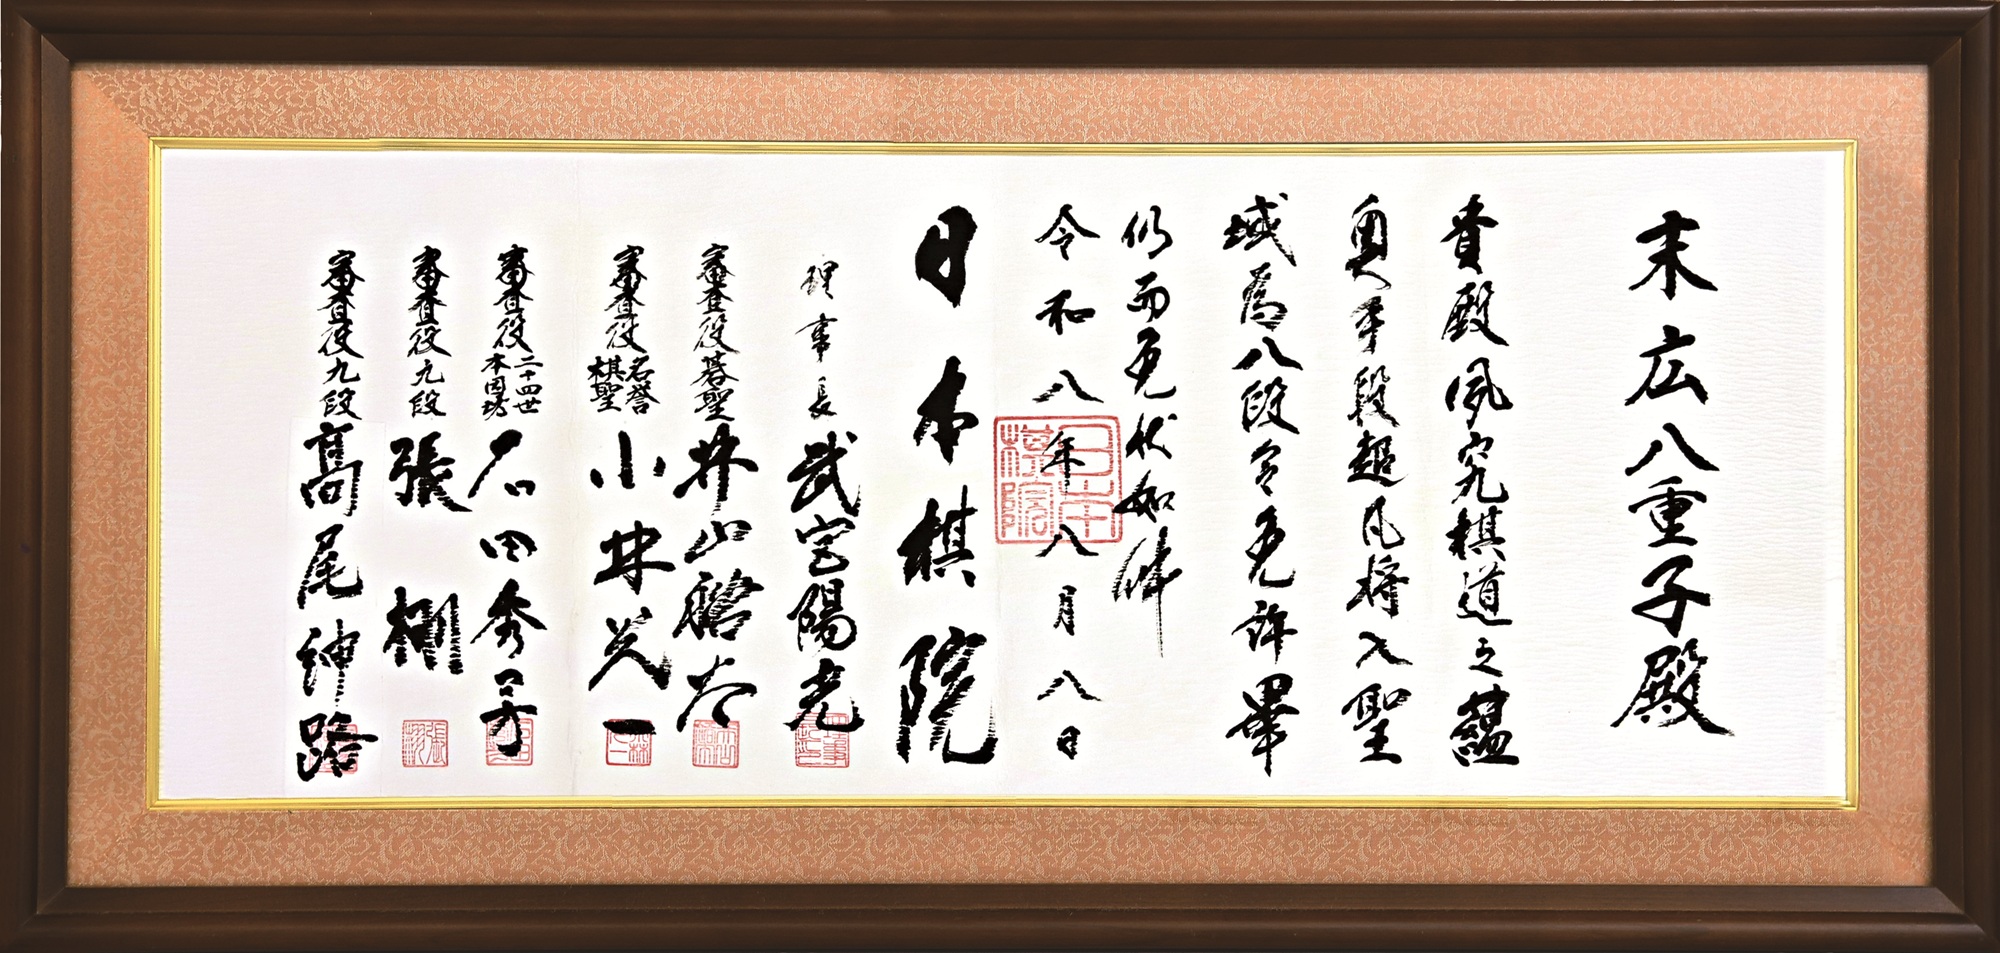 末広八重子殿
貴殿夙究棋道之蘊
奥手段超凡将入聖
域為八段令免許畢
仍而免状如件
令和八年八月八日
日本棋院
理事長 武宮陽光
審査役碁聖 井山裕太
審査役名誉棋聖 小林光一
審査役二十四世本因坊 石田秀芳
審査役九段 張栩
審査役九段 高尾紳路
日本棋院